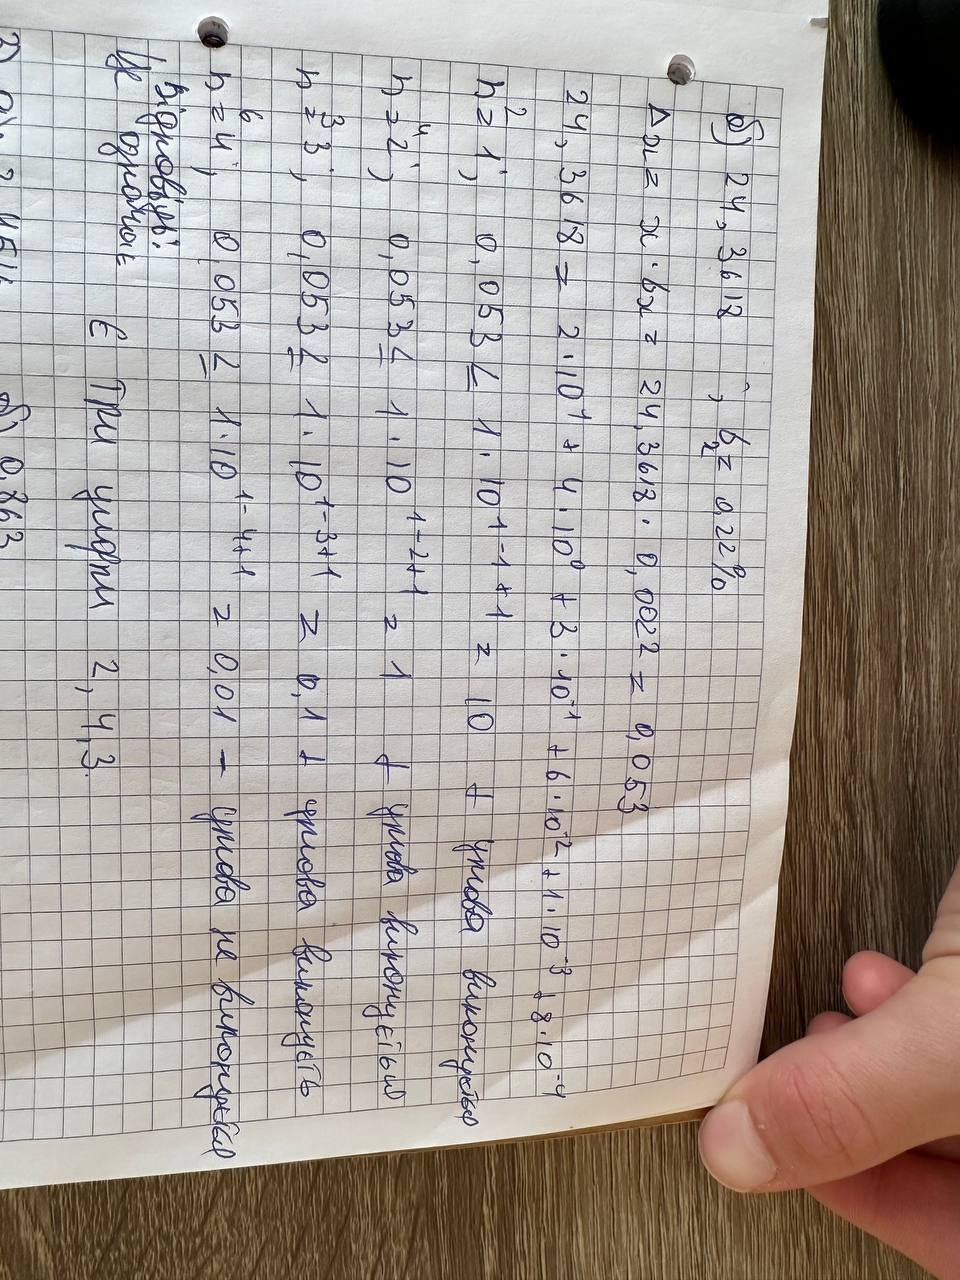 б) 24,3618 ; бx = 0,22%
Δx = x · бx = 24,3618 · 0,0022 = 0,053
24,3618 = 2·10¹ + 4·10⁰ + 3·10⁻¹ + 6·10⁻² + 1·10⁻³ + 8·10⁻⁴
2
n = 1; 0,053 ≤ 1·10¹⁻¹⁺¹ = 10 + умова виконується
4
n = 2; 0,053 ≤ 1·10¹⁻²⁺¹ = 1 + умова виконується
3
n = 3; 0,053 ≤ 1·10¹⁻³⁺¹ = 0,1 + умова виконуєть
6
n = 4; 0,053 ≤ 1·10¹⁻⁴⁺¹ = 0,01 – умова не виконується
Відповідь:
Це є три цифри 2,4,3.
б) 0,863